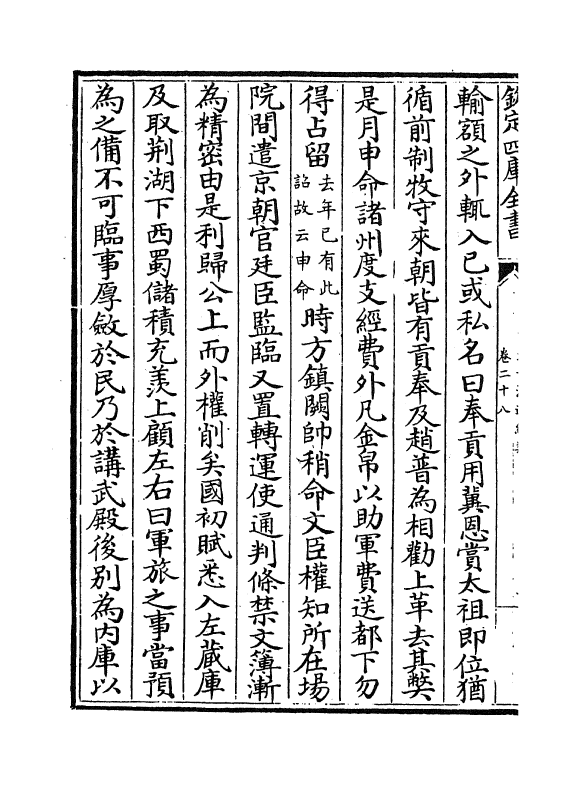 欽定四庫全書
卷二十八
輸額之外輒入已或私名曰奉貢用冀恩賞太祖即位猶
循前制牧守來朝皆有貢奉及趙普為相勸上革去其弊
是月申命諸州度支經費外凡金帛以助軍費送都下勿
得占留去年已有此詔故云申命時方鎮闕帥稍命文臣權知所在場
院間遣京朝官廷臣監臨又置轉運使通判條禁文簿漸
為精密由是利歸公上而外權削矣國初賦悉入左藏庫
及取荆湖下西蜀儲積充羨上顧左右曰軍旅之事當預
為之備不可臨事厚斂於民乃於講武殿後别為内庫以